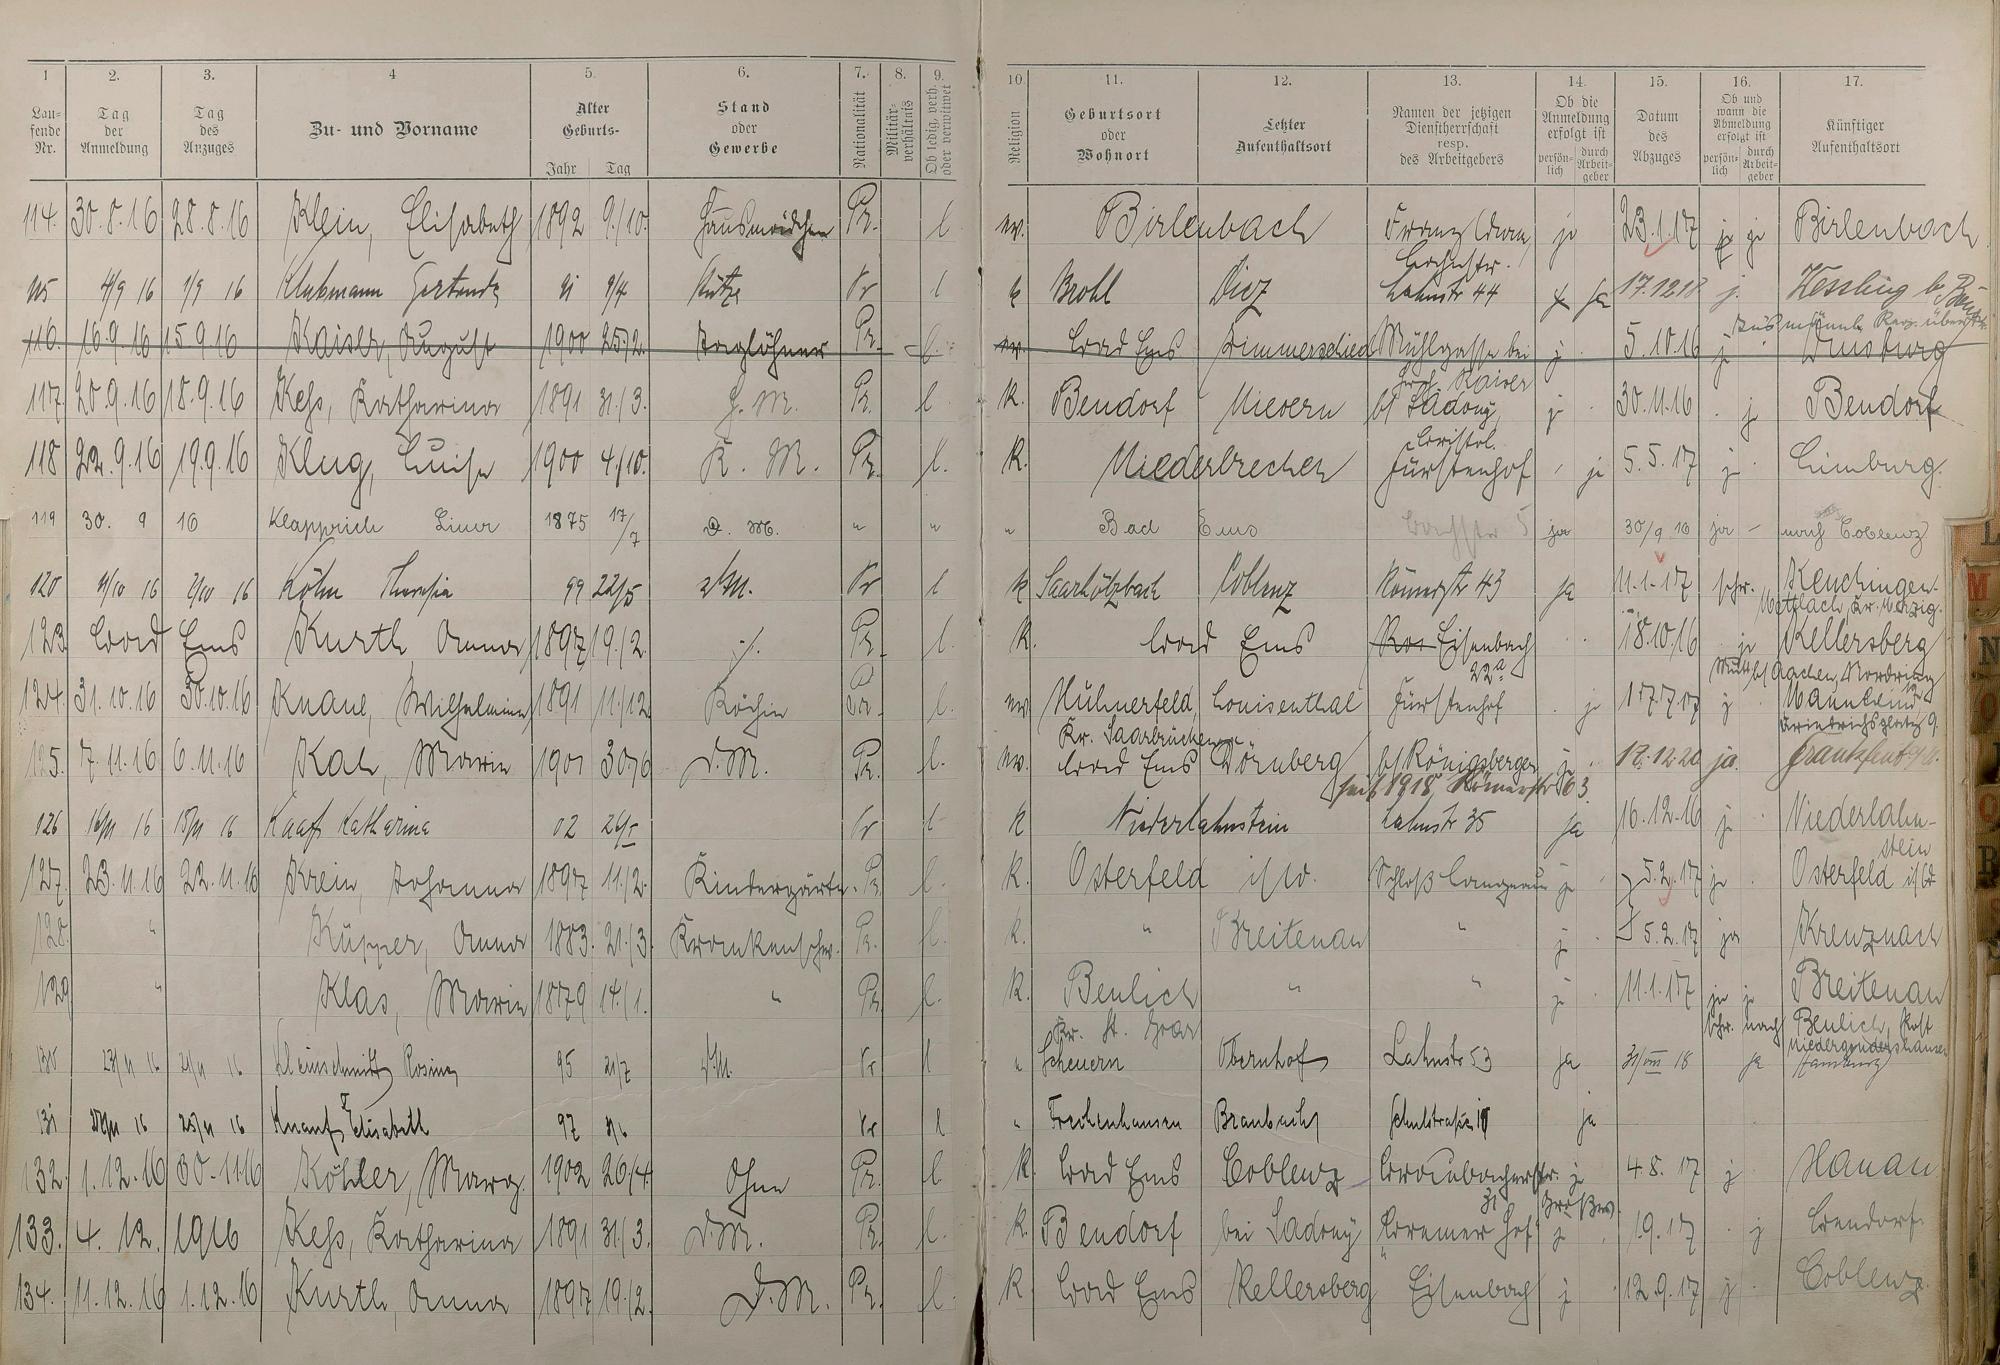 1 2. 3. 4 5. 6. 7. 8. 9. 10 11. 12. 13. 14. 15. 16. 17.
Lau-
fende
Nr.
Tag
der
Anmeldung
Tag
des
Anzuges
Zu- und Vorname
Alter
Geburts-
Jahr Tag
Stand
oder
Gewerbe
Nationalität
Militär-
verhältnis
Ob ledig, verh.
oder verwitwet
Religion
Geburtsort
oder
Wohnort
Letzter
Aufenthaltsort
Namen der jetzigen
Dienstherrschaft
resp.
des Arbeitgebers
Ob die
Anmeldung
erfolgt ist
persön-
lich
durch
Arbeit-
geber
Datum
des
Abzuges
Ob und
wann die
Abmeldung
erfolgt ist
persön-
lich
durch
Arbeit-
geber
Künftiger
Aufenthaltsort
114. 30.8.16 28.8.16 Klein, Elisabeth 1892 9./10. Hausmädchen Pr. l. ev. Birlenbach Franz ja 23.1.17 ja Birlenbach
115 4/9 16 1/9 16 Klubmann Gertrude 91 9/4 Stütze Pr l k Brohl Diez Lahnstr 44 ja 17.12.18 j.
116. 16.9.16 15.9.16 Kaiser, August 1900 25./2. Taglöhner Pr. l. ev. Bad Ems Zimmerschied Mühlgasse bei j 5.10.16 j Duisburg
Kaiser
117. 20.9.16 18.9.16 Keß, Katharina 1891 31./3. H. M. Pr. l. K. Bendorf Nievern bei Ladony j 30.11.16 j Bendorf
118 22.9.16 19.9.16 Klug, Luise 1900 4./10. K. M. Pr. l. K. Niederbrechen Fürstenhof ja 5.5.17 j Limburg.
119 30. 9 16 Klapprich Lina 1875 17/7 D. M. " " " Bad Ems 5 ja 30/9 16 ja – nach Coblenz
120 4/10 16 2/10 16 Köhn Theresia 99 22/5 DM. Pr l k Saarhölzbach Coblenz Römerstr 43 ja 11.1.17 schr. Keuchingen
Mettlach, Kr. Merzig.
123 Bad Ems Kurth, Anna 1897 19./2. ./. Pr. l. K. Bad Ems Eisenbach 18.10.16 j Kellersberg
22a
bei Aachen, Nordring
124. 31.10.16 30.10.16 Knaul, Wilhelmine 1891 11./12 Köchin Pr. l. ev. Hühnerfeld, Louisenthal Fürstenhof . j 17.7.17 j Mannheim
Kr. Saarbrücken
Friedrichsplatz 9.
125. 7.11.16 6.11.16 Kah, Maria 1901 30/6 D.M. Pr. l. ev. Bad Ems Dörnberg bei Königsberger j. 12.12.20 ja. Frankfurt a/M.
seit 1918 Römerstr 63.
126 16/11 16 15/11 16 Kaaf Katharina 02 24/5 Pr l k Niederlahnstein Lahnstr 35 ja 16.12.16 j Niederlahn-
stein
127. 23.11.16 22.11.16 Krein, Johanna 1897 11./2. Kindergärtn. Pr. l. K. Osterfeld i/W. Schloß Langenau j 5.2.17 ja Osterfeld i/W
128. " Küpper, Anna 1883. 21./3. Krankenschw. Pr. l. K. " Breitenau " j 5.2.17 ja Kreuznach
129 " Klas, Maria 1879 14./1. " Pr. l. K. Beulich " " j 11.1.17 ja j Breitenau
Kr. St. Goar
schr. nach Beulich, Post
Niedergondershausen
130 23/11 16 21/11 16 Kleinschmitt Rosina 95 21/7 DM. Pr l " Scheuern Obernhof Lahnstr 53 ja 31/VIII 18 ja Hamburg
131 28/11 16 25/11 16 Knauf, Elisabeth 97 Pr l " Frechenhausen Braubach Schulstrasse ja
132. 1.12.16 30.11.16 Köhler, Marg. 1902 26/4. Ohne Pr. l. K. Bad Ems Coblenz Braubacherstr. j. 4.8.17 j Hanau
31
133. 4. 12. 1916 Keß, Katharina 1891 31./3. D.M. Pr. l. K. Bendorf bei Ladony Bremer Hof j 1.9.17 j Bendorf
134. 11.12.16 1.12.16 Kurth, Anna 1897 19./2. D.M. Pr. l. K. Bad Ems Kellersberg Eisenbach j 12.9.17 j Coblenz